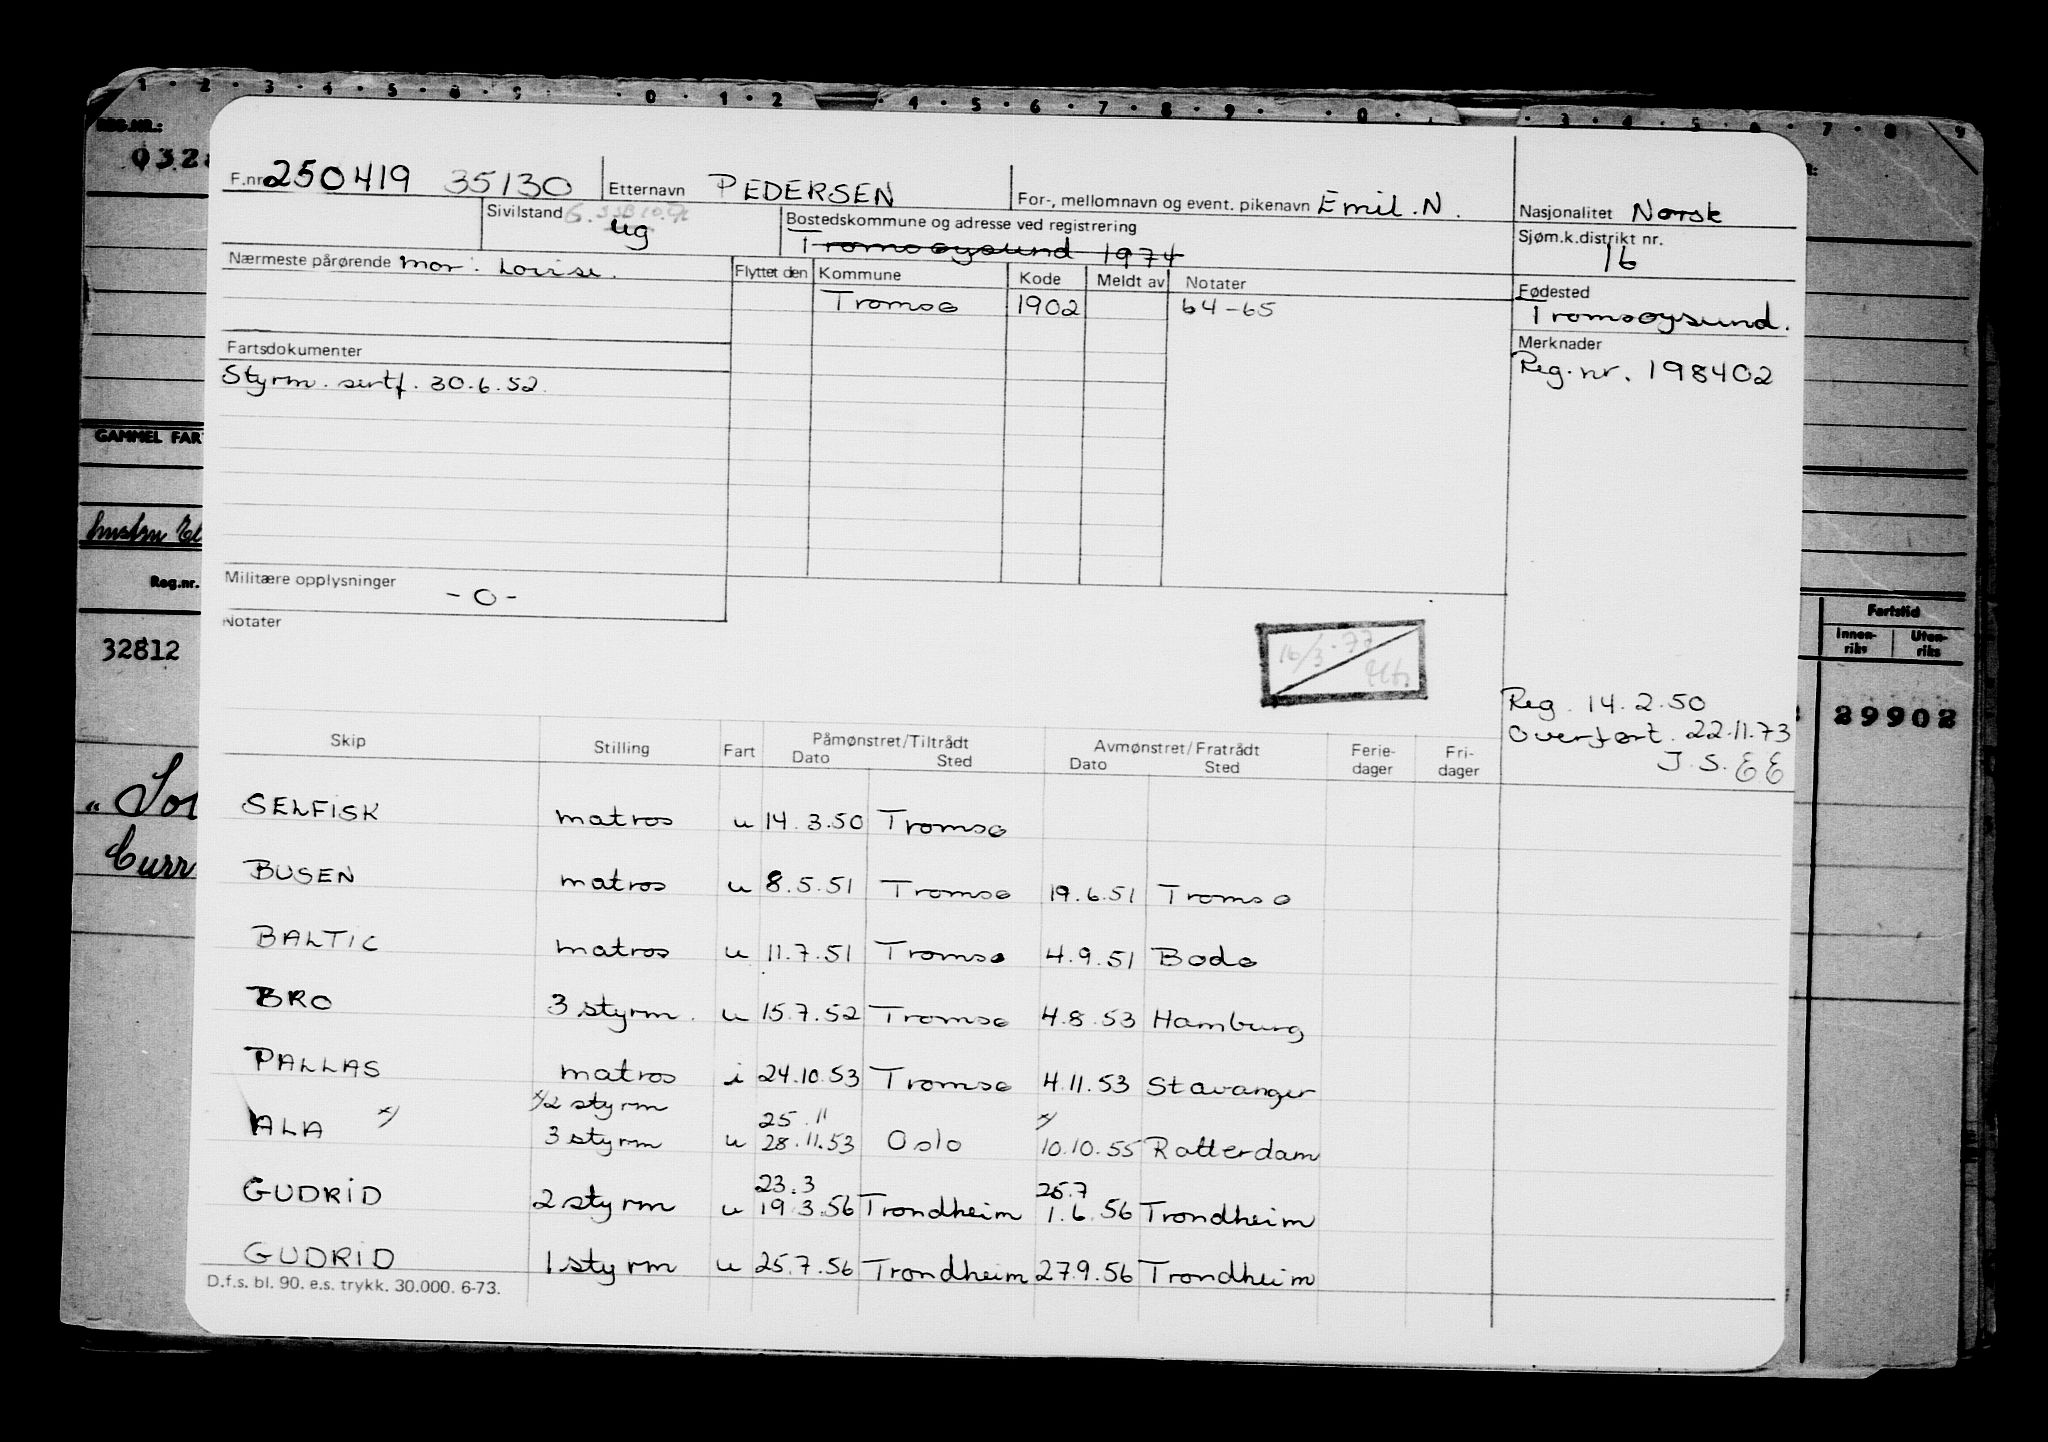 1 2 3 4 5 6 9 0 1 2 4 5 6 7 8 9 0 3 4 5 6 7 8 9
REG.NR.:
F.nr 250419 35130 Etternavn PEDERSEN For-, mellomnavn og event. pikenavn Emil.N. Nasjonalitet Norsk
Sivilstand ug Bostedskommune og adresse ved registrering Sjøm.k.distrikt nr.
Tromsøysund 1974 16
Nærmeste pårørende mor: Lovise. Flyttet den Kommune Kode Meldt av Notater Fødested
Tromsø 1902 64-65 Tromsøysund.
Fartsdokumenter Merknader
Styrm. sertf. 30.6.52. Reg.nr. 198402
GAMMEL FAR
Reg.nr.
Militære opplysninger
-0-
Notater
Fartstid
Innen-riks Uten-riks
32812
16/3-77
Reg. 14.2.50
29902
Overført. 22.11.73
J.S. EE
Skip Stilling Fart Påmønstret/Tiltrådt Dato Sted Avmønstret/Fratrådt Dato Sted Ferie-dager Fri-dager
SELFISK matros u 14.3.50 Tromsø
BUSEN matros u 8.5.51 Tromsø 19.6.51 Tromsø
Curr
BALTIC matros u 11.7.51 Tromsø 4.9.51 Bodø
BRO 3 styrm. u 15.7.52 Tromsø 4.8.53 Hamburg
PALLAS matros i 24.10.53 Tromsø 4.11.53 Stavanger
x/2 styrm 25.11 x/
ALA x/ 3 styrm u 28.11.53 Oslo 10.10.55 Rotterdam
23.3 25.7
GUDRID 2 styrm u 19.3.56 Trondheim 1.6.56 Trondheim
GUDRID 1 styrm u 25.7.56 Trondheim 27.9.56 Trondheim
D.f.s. bl. 90. e.s. trykk. 30.000. 6-73.